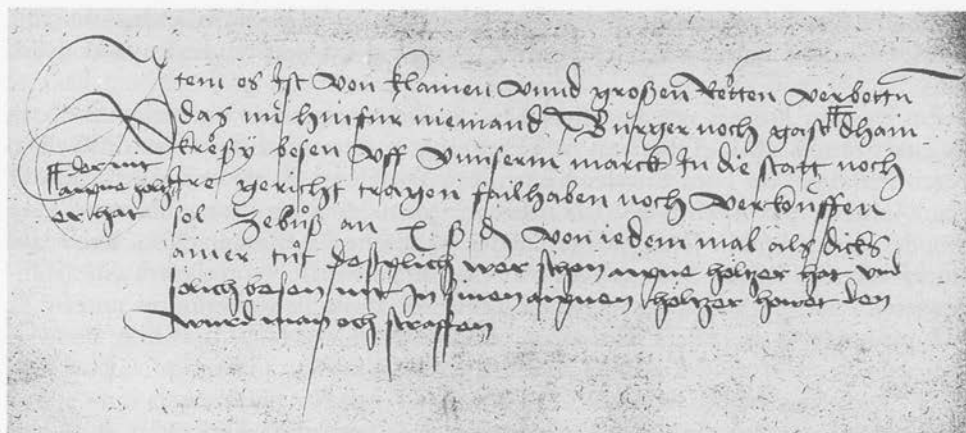 Item es Ist von klainen vnnd großen Retten verbottñ
das nũ hinfur niemand Burger noch gast dhain
kreßÿ besen vff vnnserm marck In die statt noch
Ire gericht tragen failhaben noch verkouffen
sol Zebůß an x ß ₰ von iedem mal als dicks
ainer tůt deßglich wer schon aigne höltzer hat vnd
solich besen nit In sinen aignen höltzer howet den
wurd man och straffen
der nit
aigne höltz
er hat